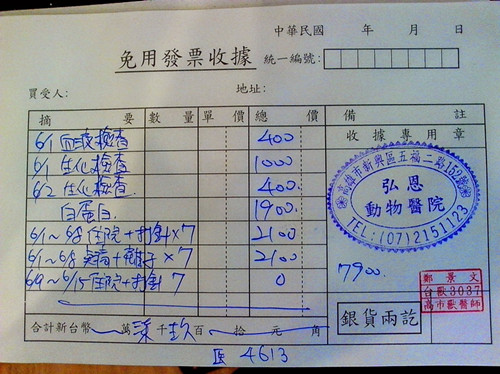 中華民國 年 月 日
免用發票收據
統一編號:
買受人: 地址:
摘要 數量 單價 總價 備註
收據專用章
6/1 血液檢查 400
6/1 生化檢查 1000
6/2 生化檢查. 400.
白蛋白. 1900.
6/1~6/8 住院+打針×7 2100
6/1~6/8 +離子×7 2100
6/9~6/15 住院+打針 7 0
高雄市新興區五福二路152號
弘恩
動物醫院
TEL:(07)2151123
7900.
鄭景文
台獸3037
高市獸醫師
合計新台幣 萬柒千玖百 拾 元 角
銀貨兩訖
4613